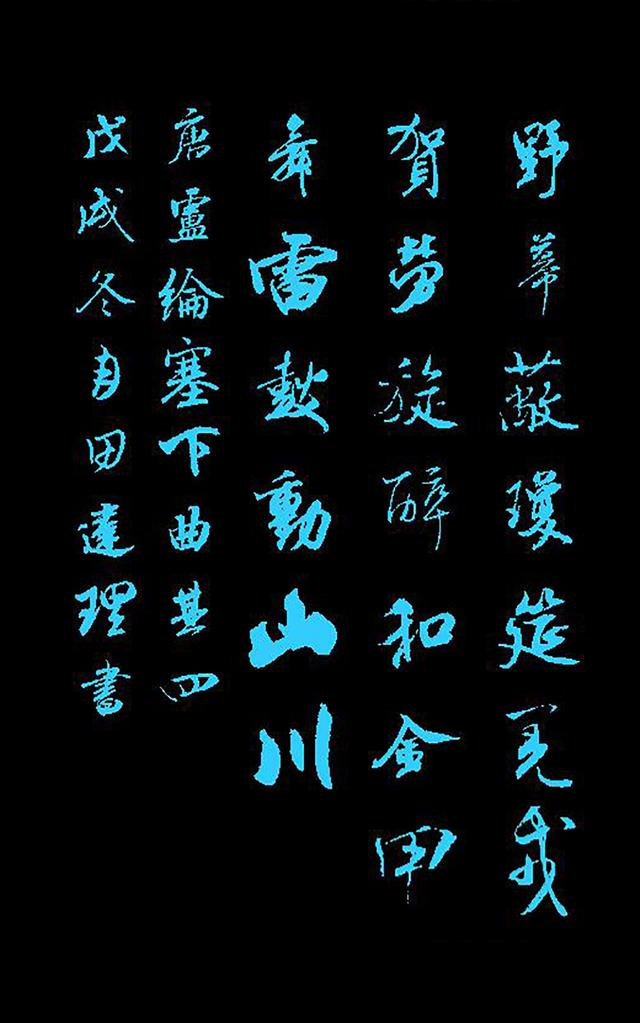 野幕蔽瓊筵羌戎
賀勞旋醉和金甲
舞雷鼓動山川
唐盧綸塞下曲其四
戊戌冬月田達理書